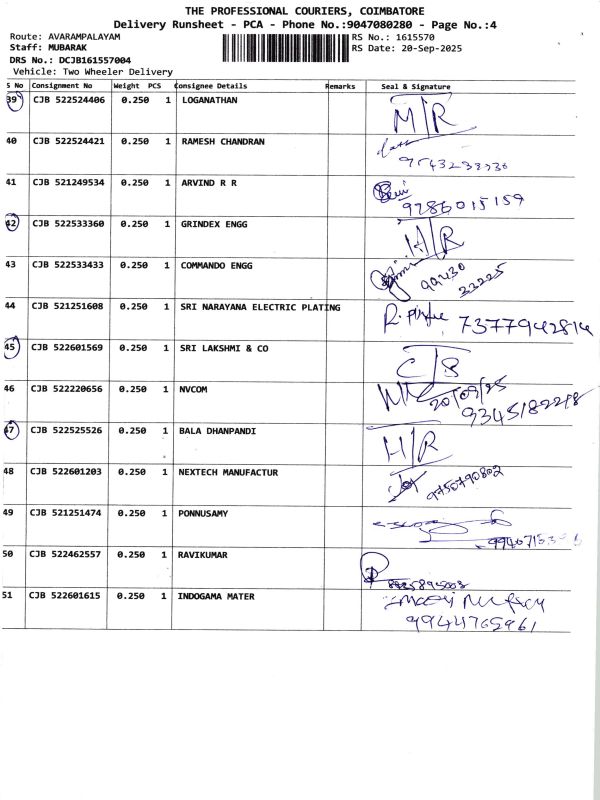 THE PROFESSIONAL COURIERS, COIMBATORE
Delivery Runsheet - PCA - Phone No.:9047080280 - Page No.:4
Route: AVARAMPALAYAM RS No.: 1615570
Staff: MUBARAK RS Date: 20-Sep-2025
DRS No.: DCJB161557004
Vehicle: Two Wheeler Delivery
S No Consignment No Weight PCS Consignee Details Remarks Seal & Signature
39 CJB 522524406 0.250 1 LOGANATHAN M/R
40 CJB 522524421 0.250 1 RAMESH CHANDRAN
41 CJB 521249534 0.250 1 ARVIND R R
9786015159
42 CJB 522533360 0.250 1 GRINDEX ENGG H/R
43 CJB 522533433 0.250 1 COMMANDO ENGG 99430
33225
44 CJB 521251608 0.250 1 SRI NARAYANA ELECTRIC PLATING 7377942814
45 CJB 522601569 0.250 1 SRI LAKSHMI & CO C/B
46 CJB 522220656 0.250 1 NVCOM 20/09/25
47 CJB 522525526 0.250 1 BALA DHANPANDI H/R
48 CJB 522601203 0.250 1 NEXTECH MANUFACTUR 9750790802
49 CJB 521251474 0.250 1 PONNUSAMY
50 CJB 522462557 0.250 1 RAVIKUMAR
51 CJB 522601615 0.250 1 INDOGAMA MATER
9944765961